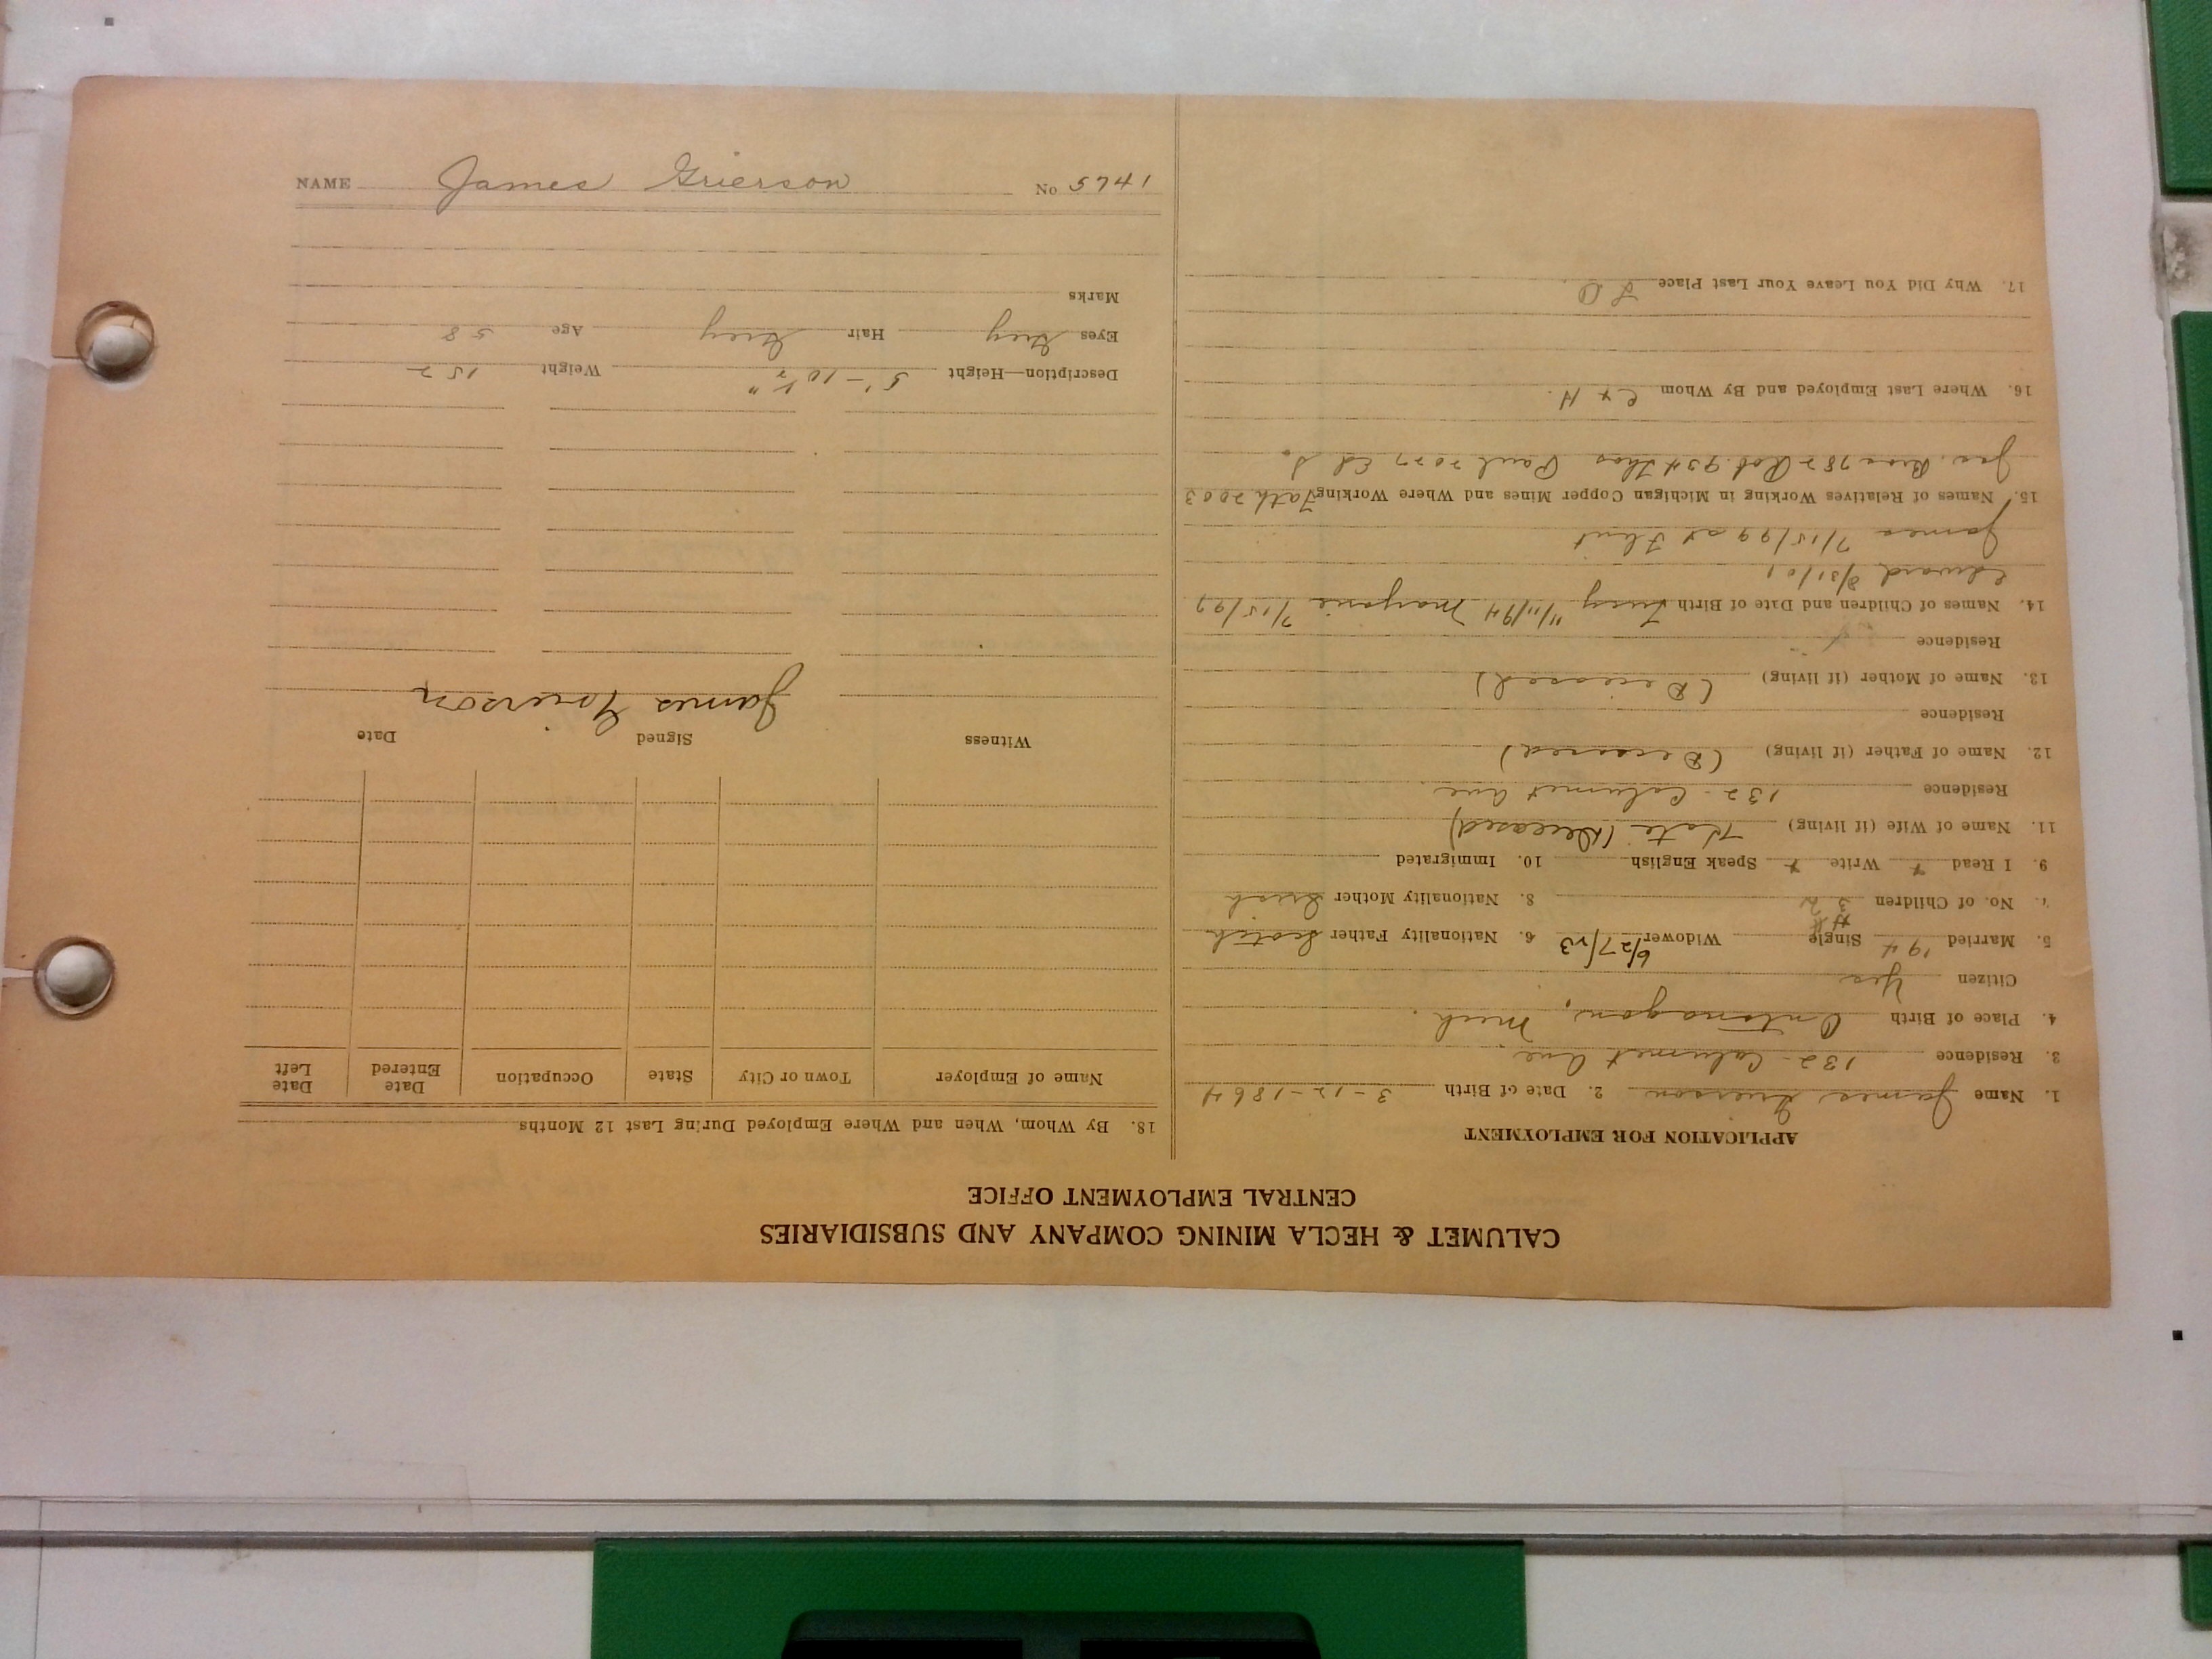 CALUMET & HECLA MINING COMPANY AND SUBSIDIARIES
CENTRAL EMPLOYMENT OFFICE
APPLICATION FOR EMPLOYMENT
1. Name James Grierson 2. Date of Birth 3-12-1864
3. Residence 132- Calumet Ave
4. Place of Birth Ontonagon, Mich.
Citizen Yes
5. Married '94 Single Widower 6/27/23 6. Nationality Father Scotch
7. No. of Children 3 8. Nationality Mother Irish
9. I Read + Write + Speak English 10. Immigrated
11. Name of Wife (if living) Kate (Deceased)
Residence 132- Calumet Ave.
12. Name of Father (if living) (Deceased)
Residence
13. Name of Mother (if living) (Deceased)
Residence
14. Names of Children and Date of Birth Lucy 11/11/94 Marjorie 7/15/97
Edward 8/31/01
James 7/15/99 at Flint
15. Names of Relatives Working in Michigan Copper Mines and Where Working 2003
Jas. Bros 782 Rob. 934 Thos Paul 2027 Ed
16. Where Last Employed and By Whom C & H.
17. Why Did You Leave Your Last Place L O
18. By Whom, When and Where Employed During Last 12 Months
Name of Employer Town or City State Occupation Date Entered Date Left
Witness Signed Date
James Grierson
Description—Height 5'-10 1/2" Weight 152
Eyes Grey Hair Grey Age 58
Marks
NAME James Grierson No 5741